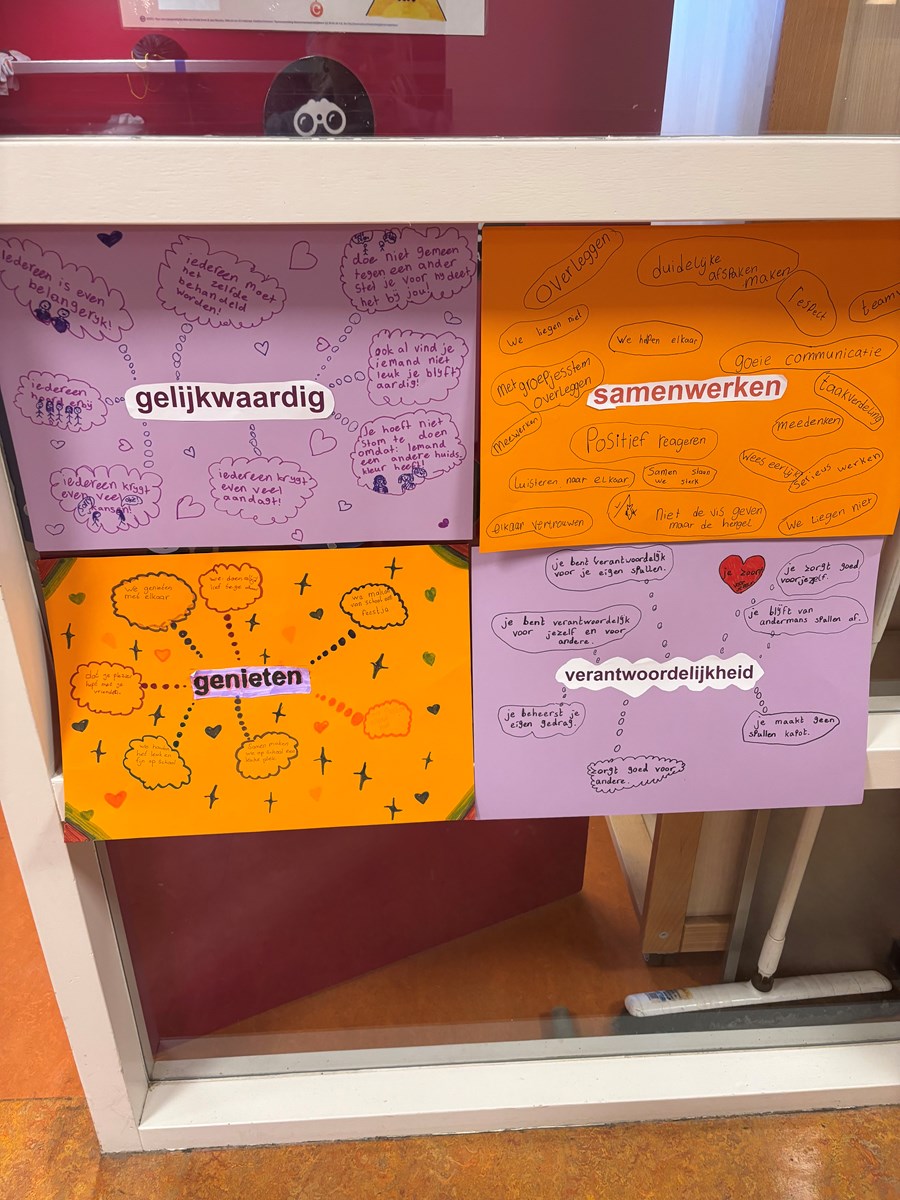 Iedereen is even
belangeryk!
iedereen moet
het
zelfde
behandeld
worden!
doe niet gemeen
tegen een ander
stel je voor hy deet
het by jou!
ook al vind je
iemand niet
leuk je blyft
aardig!
iedereen
gelijkwaardig
Je hoeft niet
stom te doen
omdat: Iemand
een andere huids
kleur heeft!
iedereen krygt
even veel
kansen!
iedereen krygt
even veel
aandagt!
Overleggen
duidelijke
afspraken
maken
respect
We liegen niet
We helpen elkaar
goeie communicatie
Met groepjesstem
overleggen
samenwerken
taakverdeling
meewerken
meedenken
Positief reageren
Wees eerlijk
Serieus werken
Luisteren naar elkaar
Samen staan
we sterk
elkaar vertrouwen
Niet de vis geven
maar de hengel
We liegen niet
we genieten
met elkaar
we maken
van school een
feestje
genieten
dat je plezier
hebt met je
vrienden.
je bent verantwoordelijk
voor je eigen spullen.
je zorgt goed
voor jezelf.
je bent verantwoordelijk
voor jezelf en voor
andere.
je blijft van
andermans spullen af.
verantwoordelijkheid
je beheerst je
eigen gedrag.
je maakt geen
spullen kapot.
zorgt goed voor
andere.